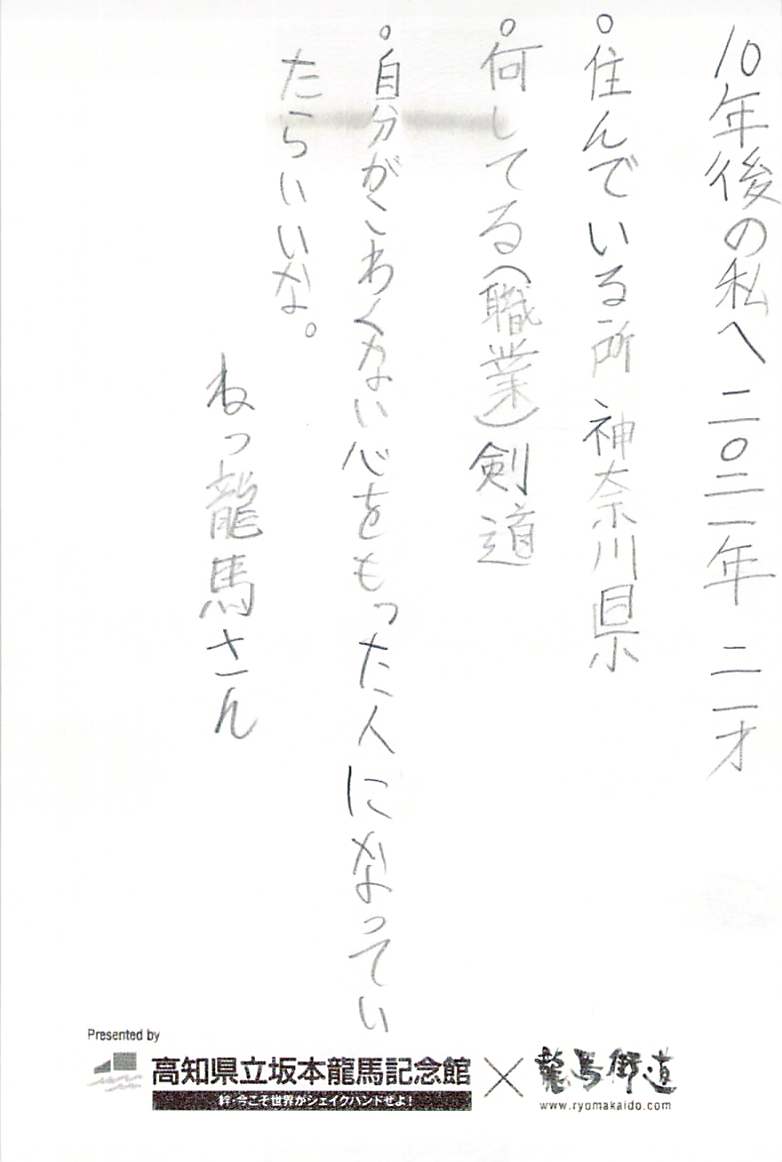 10年後の私へ 二〇二一年 二一才
°住んでいる所 神奈川県
°何してる(職業)剣道
°自分がこわくない心をもった人になってい
たらいいな。
ねっ龍馬さん
Presented by
高知県立坂本龍馬記念館
絆・今こそ世界がシェイクハンドせよ!
×
龍馬街道
www.ryomakaido.com